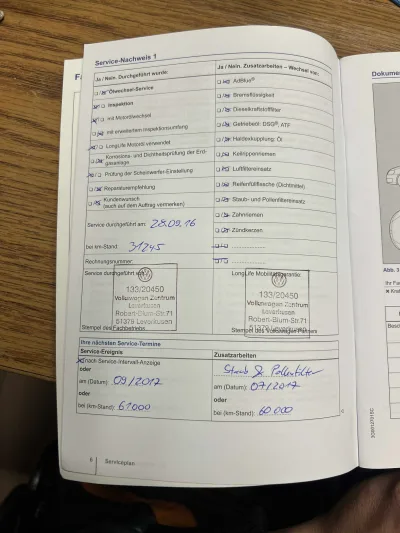 Service-Nachweis 1
Ja / Nein. Durchgeführt wurde:
Ölwechsel-Service
Inspektion
mit Motorölwechsel
mit erweitertem Inspektionsumfang
LongLife Motoröl verwendet
Korrosions- und Dichtheitsprüfung der Erd-
gasanlage
Prüfung der Scheinwerfer-Einstellung
Reparaturempfehlung
Kundenwunsch
(auch auf dem Auftrag vermerken)
Service durchgeführt am: 28.09.16
bei km-Stand: 31245
Rechnungsnummer:
Service durchgeführt von:
133/20450
Volkswagen Zentrum
Leverkusen
Robert-Blum-Str.71
51379 Leverkusen
Stempel des Fachbetriebs
Ja / Nein. Zusatzarbeiten – Wechsel von:
AdBlue®
Bremsflüssigkeit
Dieselkraftstofffilter
Getriebeöl: DSG®, ATF
Haldexkupplung: Öl
Keilrippenriemen
Luftfiltereinsatz
Reifenfüllflasche (Dichtmittel)
Staub- und Pollenfiltereinsatz
Zahnriemen
Zündkerzen
LongLife Mobilitätsgarantie:
133/20450
Volkswagen Zentrum
Leverkusen
Robert-Blum-Str.71
51379 Leverkusen
Stempel des Volkswagen Partners
Ihre nächsten Service-Termine
Service-Ereignis
nach Service-Intervall-Anzeige
oder
am (Datum): 09/2017
oder
bei (km-Stand): 61000
Zusatzarbeiten
Staub & Pollenfilter
am (Datum): 07/2017
oder
bei (km-Stand): 60.000
6 Serviceplan
Dokumen
Abb. 3
Ihr Fa
Kra
Besch